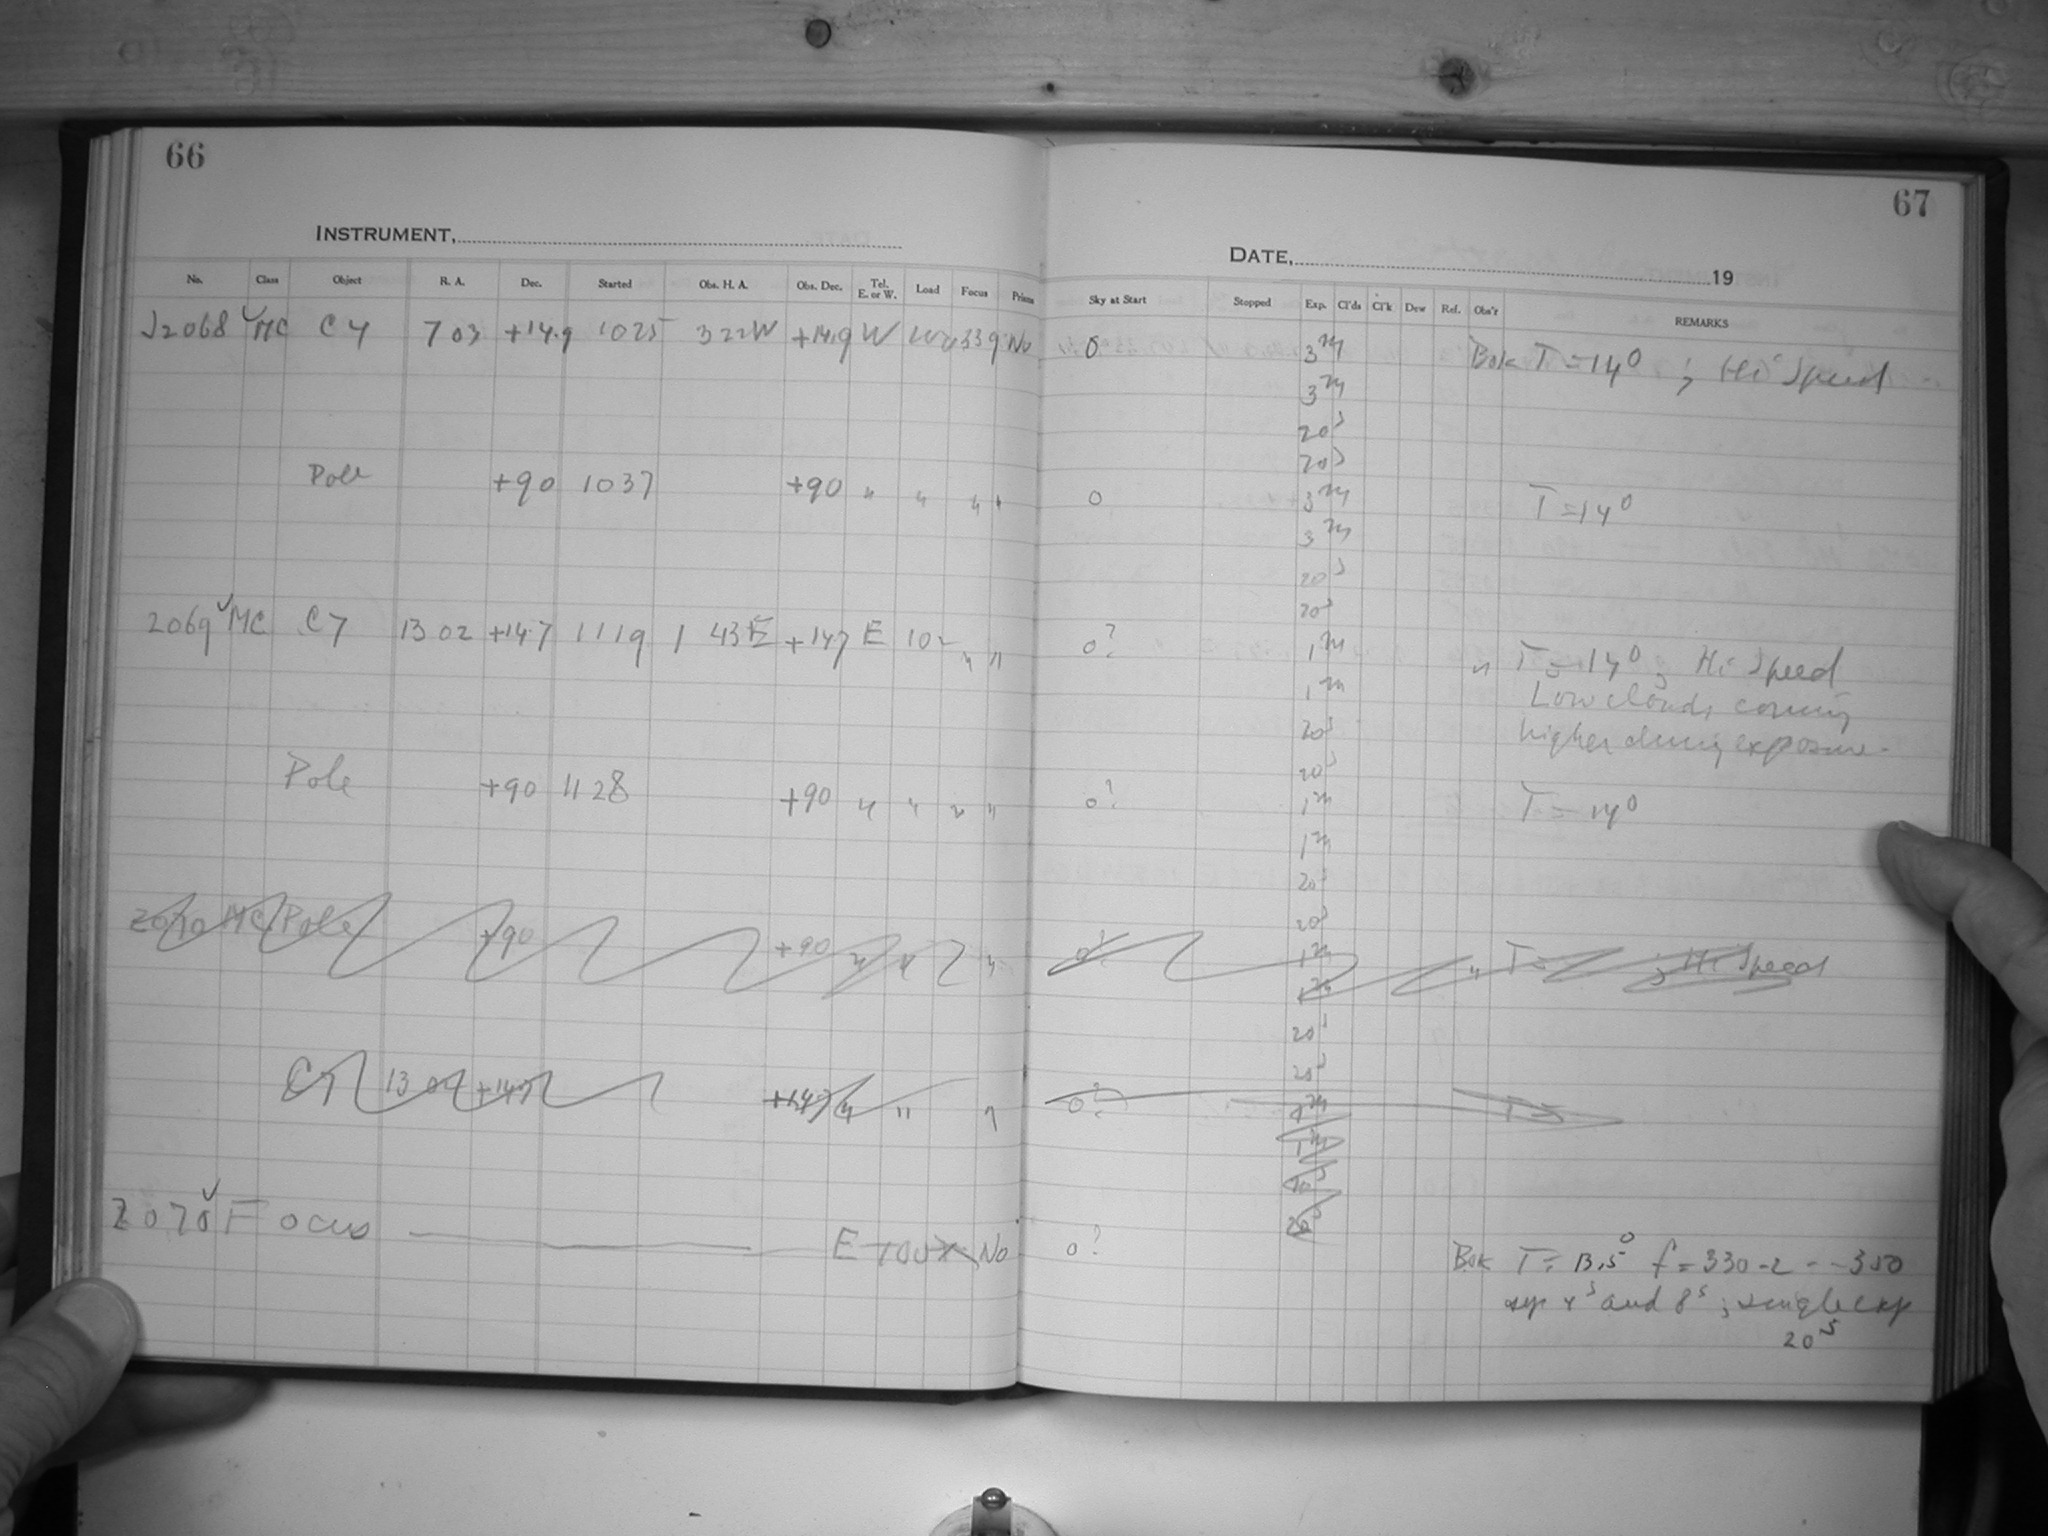 66
INSTRUMENT,
No. Class Object R. A. Dec. Started Obs. H. A. Obs. Dec. Tel. E. or W. Load Focus Prism
J2068 MC C4 7 03 +14.9 1025 3 22W +14.9 W 339 No
Pole +90 1037 +90 " " " "
2069 MC C7 13 02 +14.7 1119 1 43E +14.7 E " "
Pole +90 1128 +90 " " " "
2070 MC Pole +90 +90 " " "
C7 13 02 +14.7 +14.7 " "
2070 Focus E No
67
DATE, 19
Sky at Start Stopped Exp. Cl'ds Cl'k Dew Ref. Obs'r REMARKS
0 3m Bok T = 14° ; Hi Speed
3m
20s
20s
0 3m T = 14°
3m
20s
20s
0? 1m " T = 14° ; Hi Speed
1m Low clouds coming
20s higher during exposure.
20s
0? 1m T = 14°
1m
20s
20s
0? 1m " T = ; Hi Speed
1m
20s
20s
0? 1m T =
1m
20s
20s
0? Bok T = 13.5° f = 330-2 - - 350
and 8s ; single exp
20s